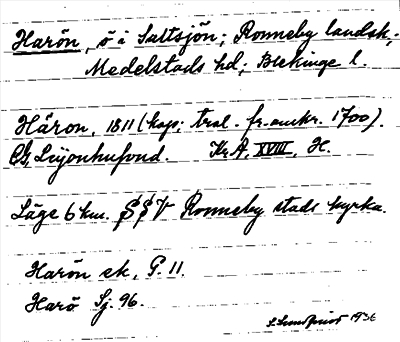 Harön, ö i Saltsjön; Ronneby landsk;
Medelstads hd; Blekinge l.
Häron, 1811 (kop; tral. fr. omkr. 1700).
CG. Leijonhufvud. Kr.A, XVIII, H.
Läge 6 km. SSV Ronneby stads kyrka.
Harön ek, G. 11.
Harö Sj. 96.
1936